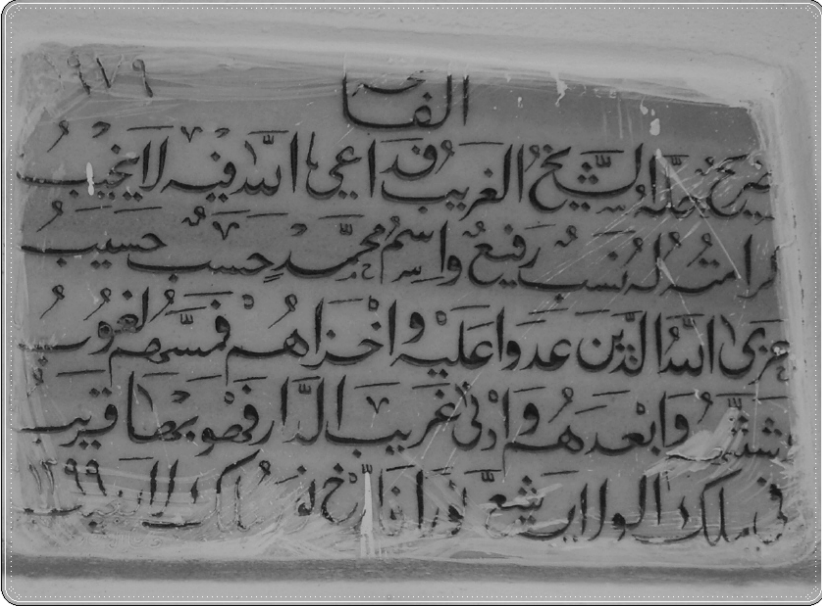 ٩٧٩
الفاتحه
ضريح حلّه الشّيخُ الغريبُ فداعي اللهَ فيه لا يخيبُ
كرامتُه لهُ نسبٌ رفيعٌ واسمُ محمّدٍ حسبٌ حسيبُ
جزى اللهُ الذّين عدوا عليه واخزاهُم فمسّهم لغوبُ
وابعدهُم وادنى غريب الدّار فهو بها قريب
في ملك الولاية شعّ نورا فارّخ نور ١٢٩٩